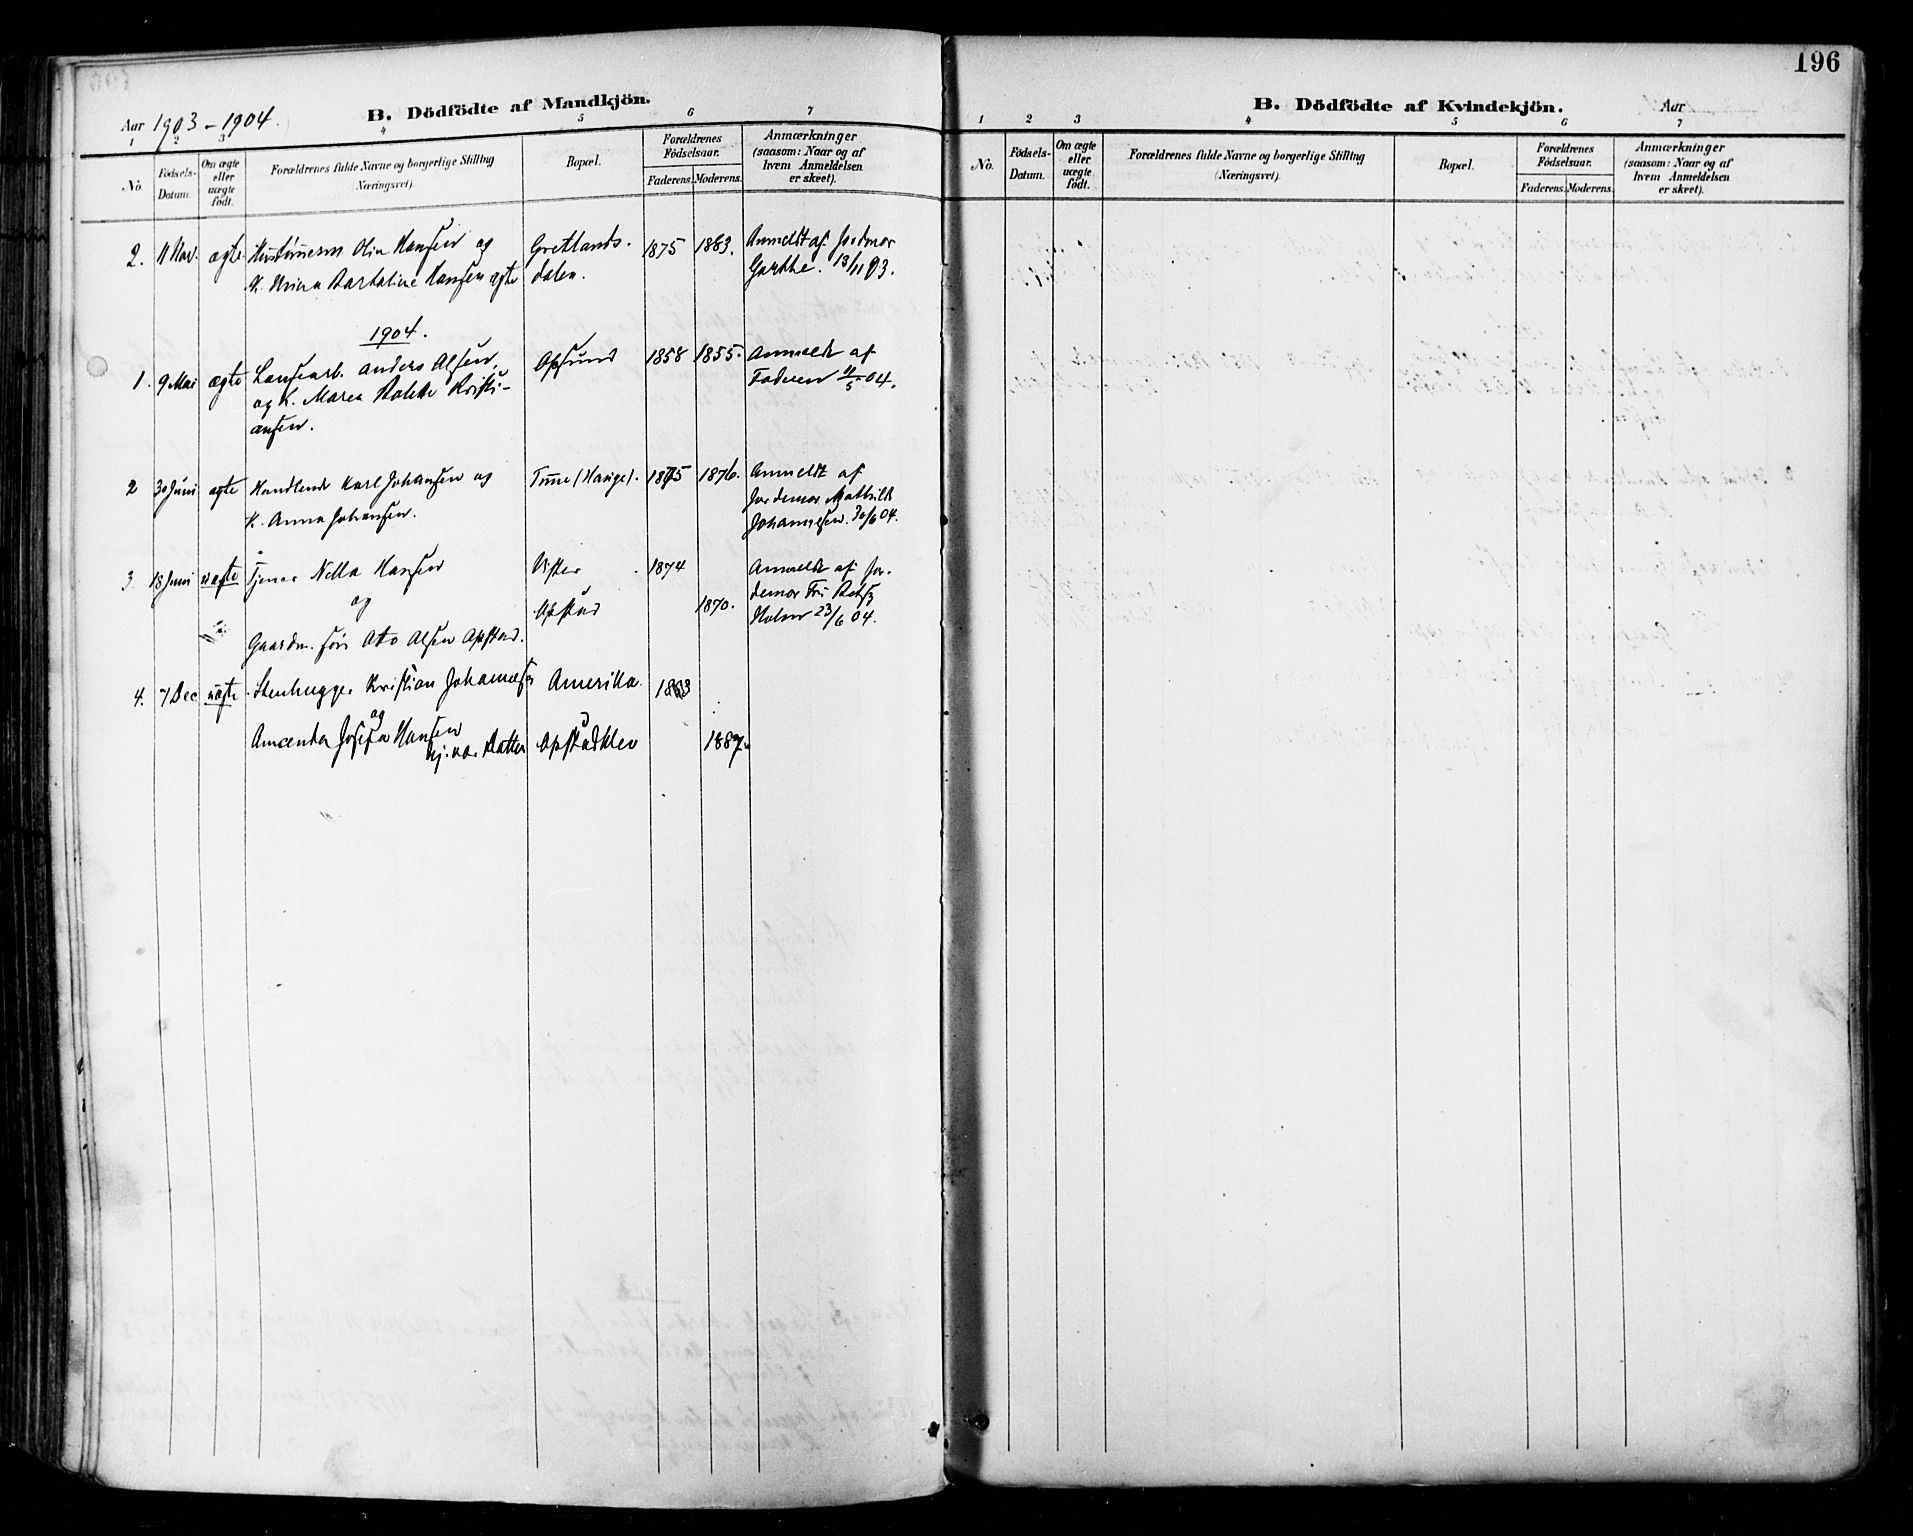 Aar 1903-1904.
B. Dödfödte af Mandkjön.
1 2 3 4 5 6 7
No.
Fødsels-Datum.
Om ægte eller uægte født.
Forældrenes fulde Navne og borgerlige Stilling
(Næringsvei).
Bopæl.
Forældrenes Fødselsaar.
Faderens. Moderens.
Anmærkninger
(saasom: Naar og af
hvem Anmeldelsen
er skeet).
2. 11 Nov. ægte Olin Hansen og Gretlands- 1875 1883. Anmeldt af Jordmor
K. Bartoline Hansen ægte dalen. Garthe. 13/11 03.
1904.
1. 9 Mai ægte Anders Olsen, Opsund 1858 1855. Anmeldt af
og K. Maren Kristi- Faderen 11/5 04.
ansen.
2 30 Juni ægte Handlende Karl Johansen og Tune (Hauge). 1875 1876. Anmeldt af
K. Anna Johansen. Jordemor Mathilde
Johannesen. 30/6 04.
3 18 Juni uægte Tjener Nella Hansen Vister 1874 Anmeldt af Jor-
og demor Fru
Opstad 1870. Holm 23/6 04.
Gaardm. søn Oto Olsen Opstad.
4. 7 Dec uægte Stenhugger Kristian Johannesen Amerika 1883
og
Josefa Hansen
Datter Opstadklev 1887.
196
B. Dödfödte af Kvindekjön.
Aar
1 2 3 4 5 6 7
No.
Fødsels-Datum.
Om ægte eller uægte født.
Forældrenes fulde Navne og borgerlige Stilling
(Næringsvei).
Bopæl.
Forældrenes Fødselsaar.
Faderens. Moderens.
Anmærkninger
(saasom: Naar og af
hvem Anmeldelsen
er skeet).